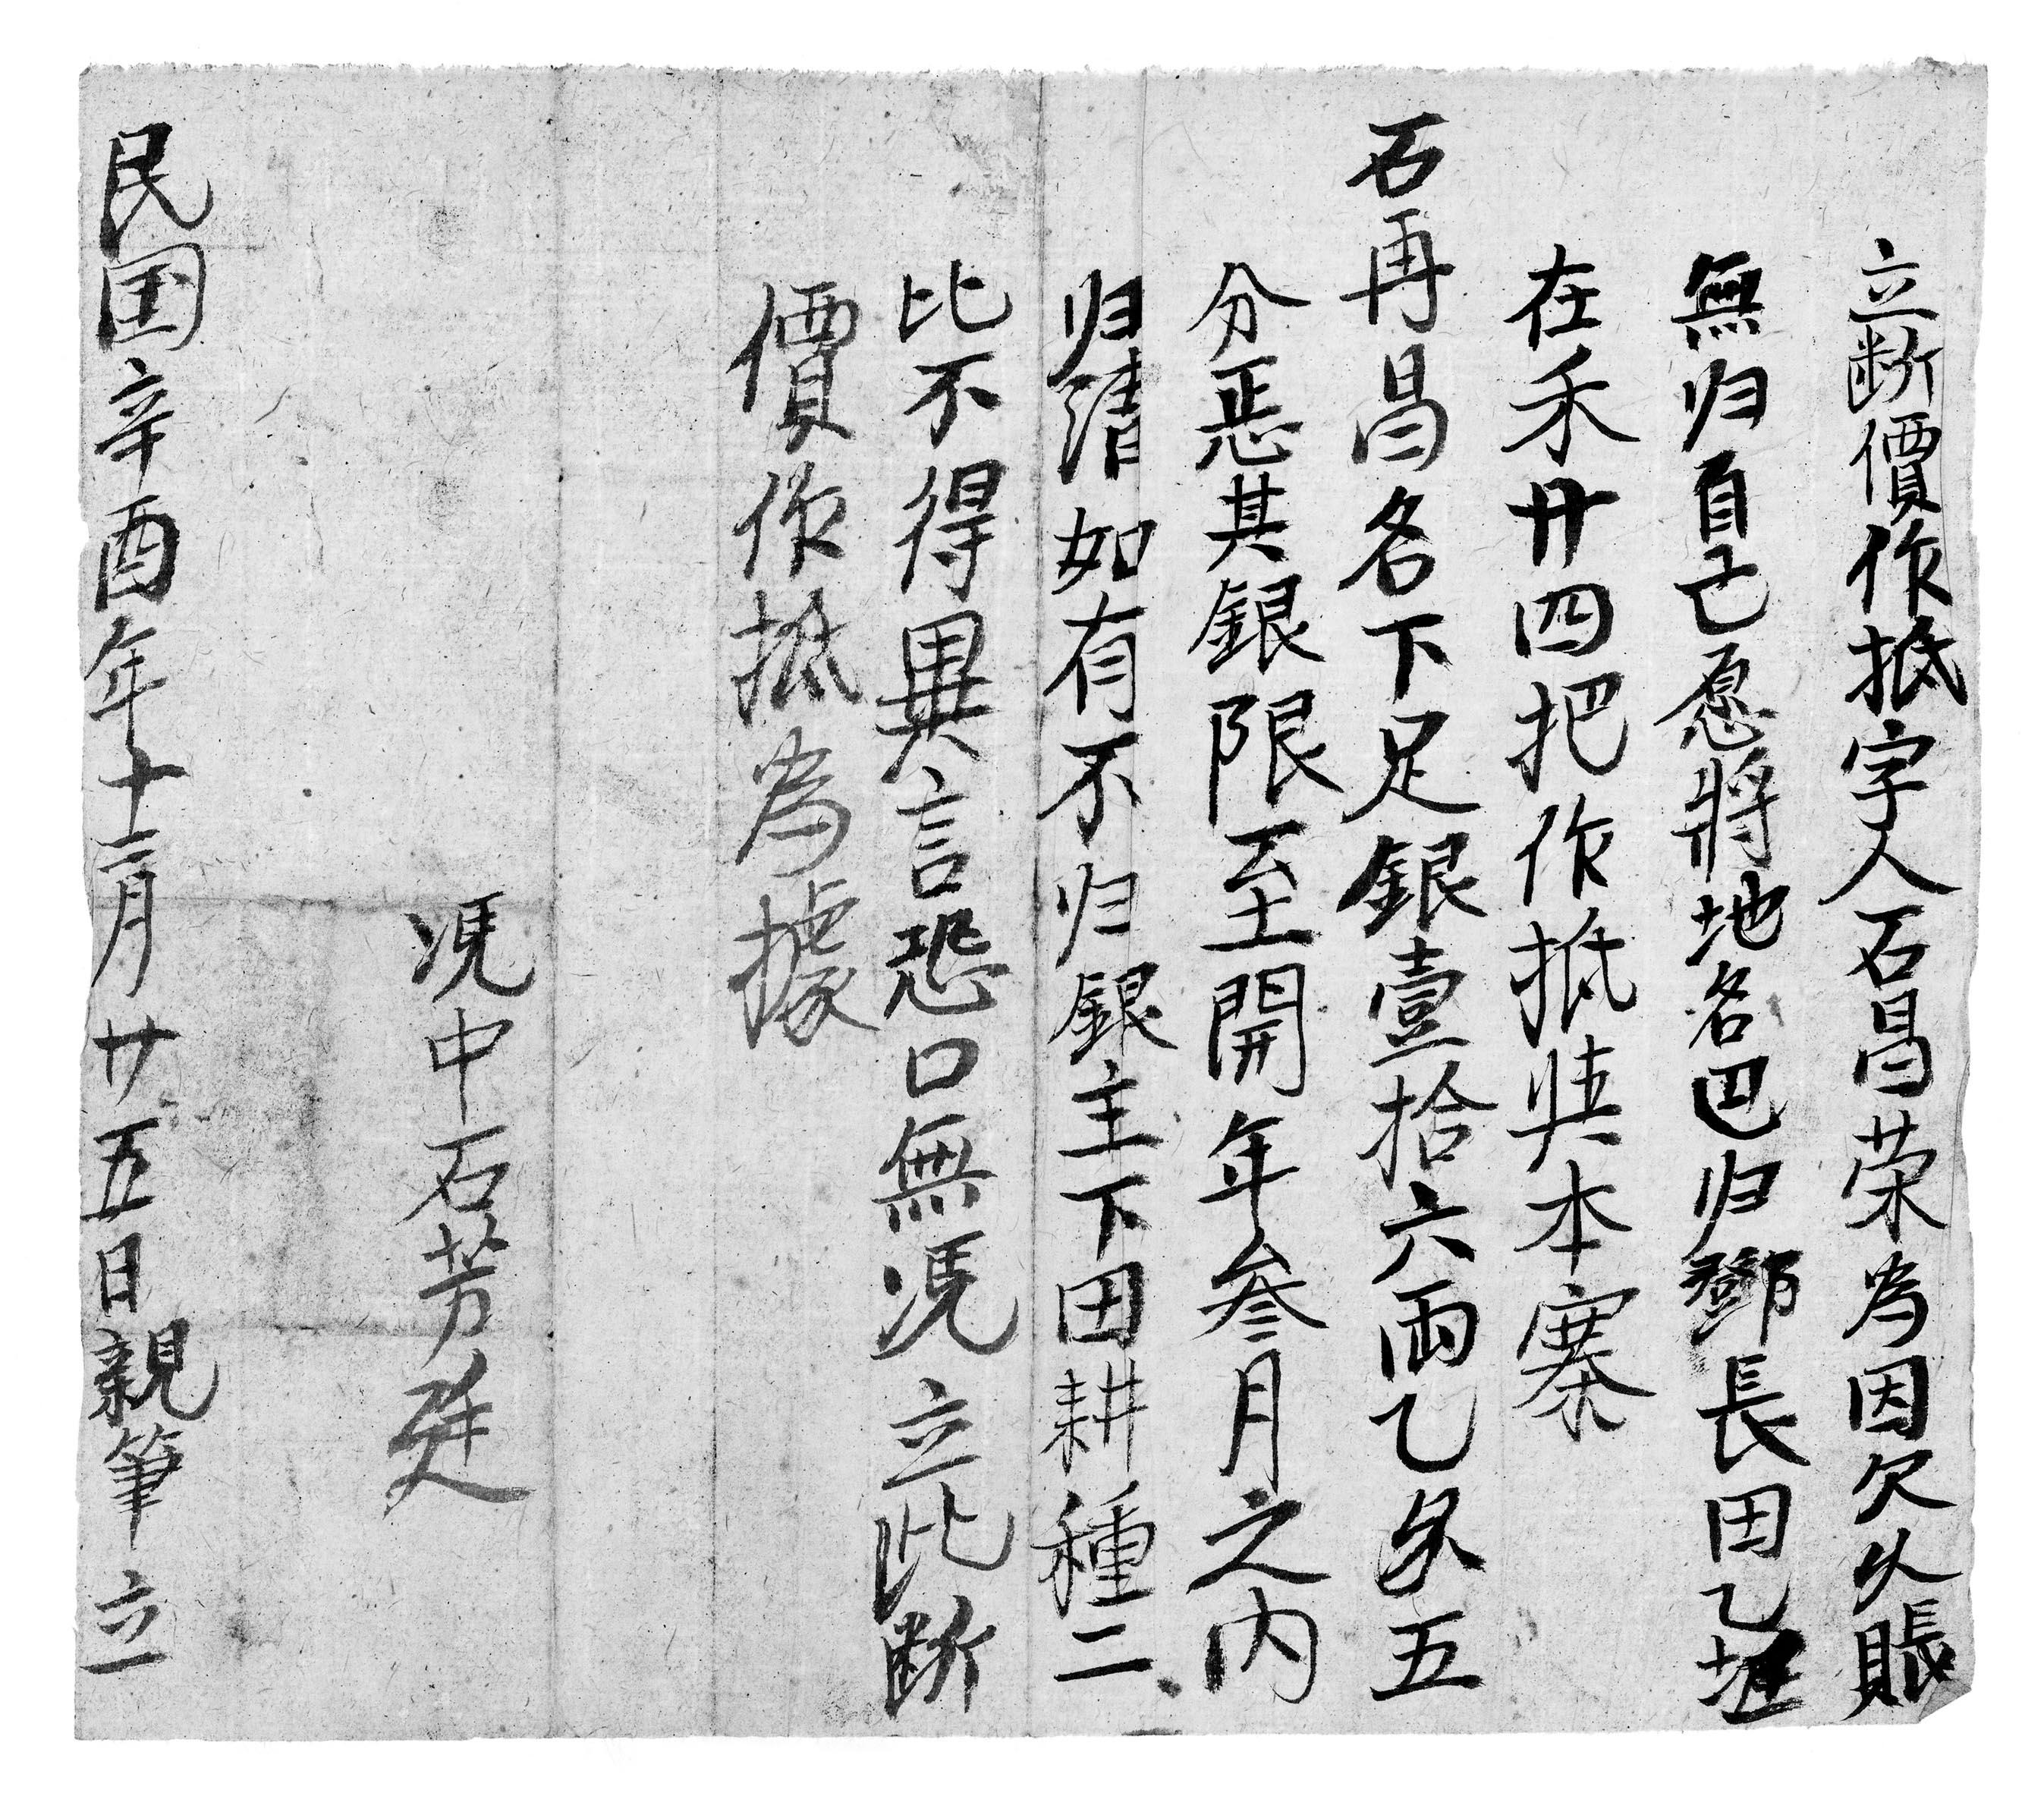 立断價作抵字人石昌荣為因欠久賬
無归自己愿將地名巴归鄧長田乙坵
在禾廿四把作抵與本寨
石再昌名下足銀壹拾六両乙𠆤五
分恶其銀限至開年叁月之内
归清如有不归銀主下田耕種二
比不得異言恐口無凴立此断
價作抵為據
凴中石芳廷
民国辛酉年十二月廿五日親筆立